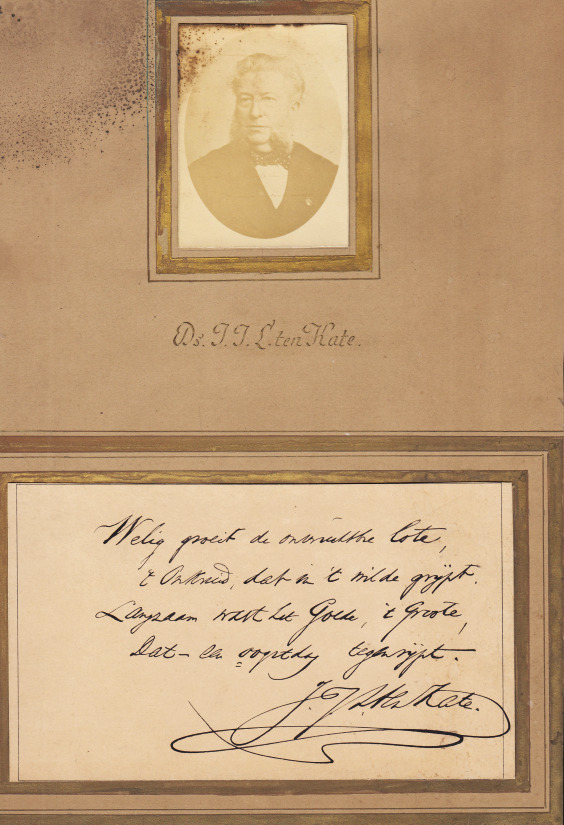 Ds. J. J. L. ten Kate.
Welig groeit de onvruchtbre lote,
't Onkruid, dat in 't wilde grijpt.
Langzaam wast het Goede, 't Groote,
Dat – een oogstdag tegenrijpt.
J. J. L. ten Kate.